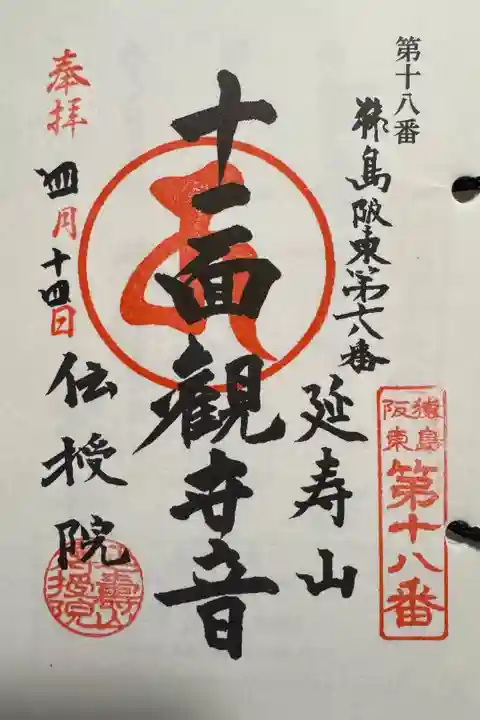 第十八番
猿島阪東第十八番
延寿山
猿島
阪東
第十八番
十一面観世音
奉拝
四月十四日
伝授院